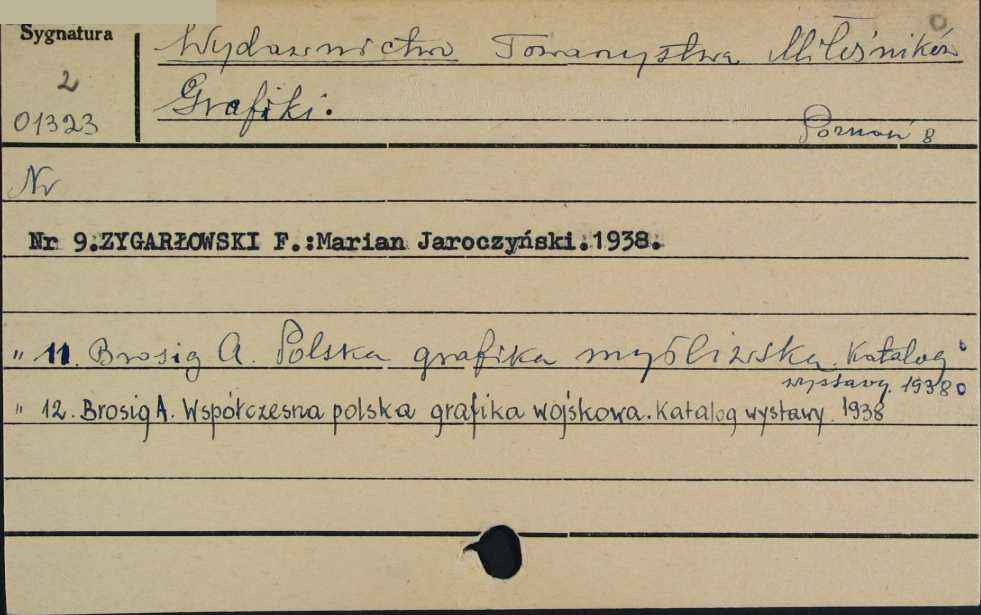 Sygnatura
2
01323
Wydawnictwo Towarzystwa Miłośników
Grafiki.
Poznań 8
Nr
Nr 9.ZYGARŁOWSKI F.:Marian Jaroczyński.1938.
" 11. Brosig A. Polska grafika myśliwska. Katalog
wystawy. 1938
" 12. Brosig A. Współczesna polska grafika wojskowa. Katalog wystawy. 1938